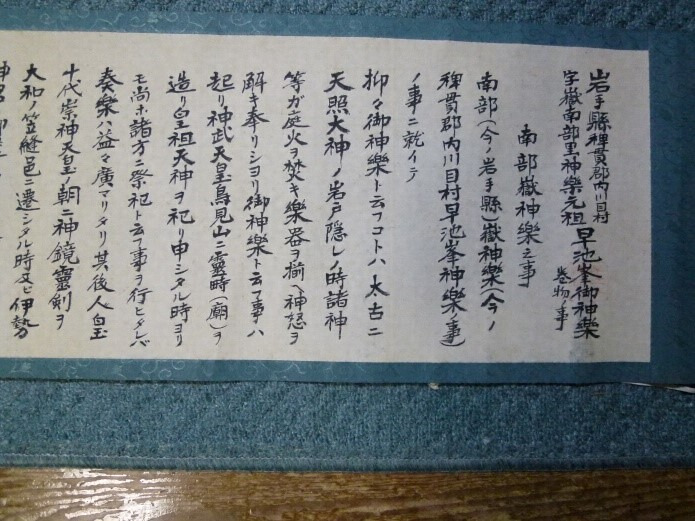 岩手縣稗貫郡內川目村
字嶽南部里神樂元祖 早池峯御神樂
巻物ノ事
南部嶽神樂之事
南部(今ノ岩手縣)嶽神樂(今ノ
稗貫郡內川目村早池峯神樂ノ事)
ノ事ニ就イテ
抑々御神樂ト云フコトハ太古ニ
天照大神ノ岩戸隠レノ時諸神
等ガ庭火ヲ焚キ樂器ヲ揃ヘ神怒ヲ
解キ奉リシヨリ御神樂ト云フ事ハ
起リ神武天皇鳥見山ニ靈時(廟)ヲ
造リ皇祖天神ヲ祀リ申シタル時ヨリ
モ尚ホ諸方ニ祭祀ト云フ事ヲ行ヒタレバ
奏樂ハ益々廣マリタリ其後人皇
十代崇神天皇ノ朝ニ神鏡靈剣ヲ
大和ノ笠縫邑ニ遷シタル時又ヒ伊勢